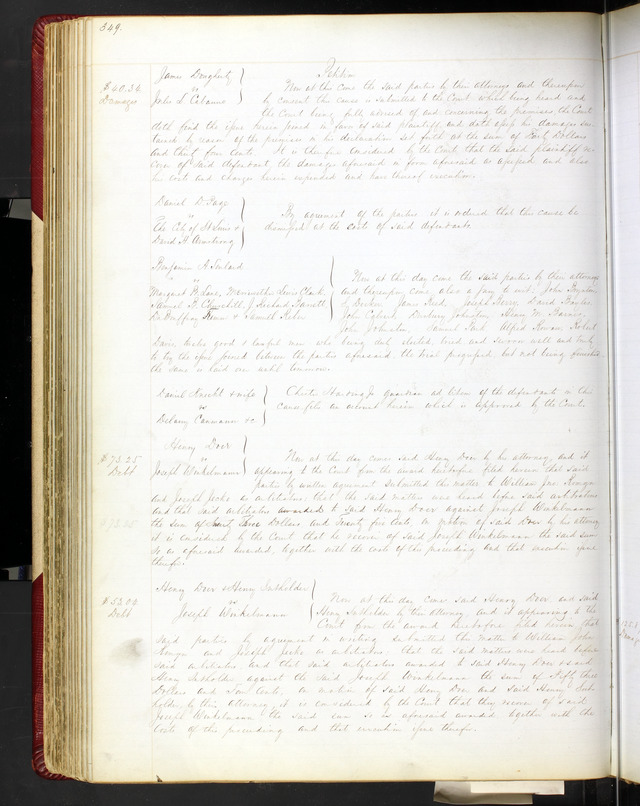 349.
James Dougherty } Petition
$40.34 vs Now at this day come the said parties by their attorneys and thereupon
Damages John L. by consent this cause is submitted to the Court which being heard and
the Court being fully advised of and concerning the premises the Court
doth find the issue herein joined in favor of said plaintiff and doth assess his damages sus-
tained by reason of the premises in the declaration set forth at the sum of Forty Dollars
and thirty four cents. It is therefore considered by the Court that the said plaintiff re-
cover of said defendant the damages aforesaid in form aforesaid as assessed and also
his costs and charges herein expended and have thereof execution.
Daniel D. Page
vs
The City of St Louis & By agreement of the parties it is ordered that this cause be
David H Armstrong dismissed at the costs of said defendants.
Benjamin A.
vs Now at this day come the said parties by their attorneys
Margaret B. Lane, Meriwether Lewis Clark and thereupon come also a jury to wit, John
Samuel B. Churchill, Richard by James Reed, Joseph David
& Samuel John Johnston, Henry W.
John Johnston, Samuel Alfred Robert
Davis twelve good & lawful men who being duly elected, tried and sworn well and truly
to try the issue joined between the parties aforesaid the trial progressed but not being finished
the same is laid over until tomorrow.
Daniel Knecht & wife Charles Jr guardian ad litem of the defendants in this
vs cause files an account herein which is approved by the Court.
Delany &c
Henry Doer
$73.25 vs Now at this day comes said Henry Doer by his attorney and it
Debt Joseph Winkelmann appearing to the Court from the award heretofore filed herein that said
parties by written agreement submitted this matter to William
and Joseph Jecko as arbitrators: that the said matters was heard before said arbitrators
and that said arbitrators awarded to said Henry Doer against Joseph Winkelmann
the sum of Seventy three Dollars and twenty five Cents on motion of said Doer by his attorney
it is considered by the Court that he recover of said Joseph Winkelmann the said sum
so as aforesaid awarded, together with the costs of this proceeding and that execution issue
therefor.
Henry Doer & Henry
$53.04 vs Now at this day comes said Henry Doer and said
Debt Joseph Winkelmann Henry by their attorney and it appearing to the
Court from the award heretofore filed herein that
said parties by agreement in writing submitted this matter to William John
and Joseph Jecko as arbitrators: that the said matters was heard before
said arbitrators and that said arbitrators awarded to said Henry Doer & said
Henry against the said Joseph Winkelmann the sum of Fifty three
Dollars and four cents, on motion of said Henry Doer and said Henry
by their attorney, it is considered by the Court that they recover of said
Joseph Winkelmann the said sum so as aforesaid awarded together with the
costs of this proceeding and that execution issue therefor.